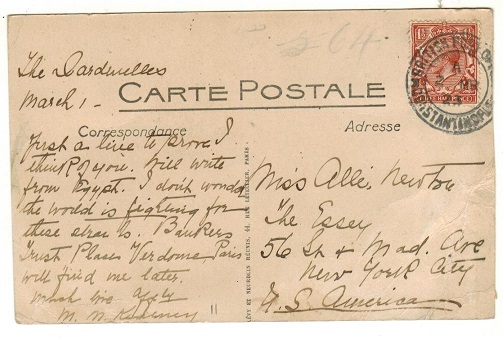 The Dardnelles
March 1 -
CARTE POSTALE
Correspondance
Adresse
Just a line to prove I
think of you. Will write
from Egypt. I don't wonder
the world is fighting for
these straits. Bankers
Trust Place Vendome Paris
will find me later.
Much love
M. N.
Miss Allie Newton
The Essex
56 St & Mad. Ave
New York City
U. S. America
64
BRITISH POST OFFICE
CONSTANTINOPLE
LÉVY ET NEURDEIN RÉUNIS, 44, RUE LETELLIER, PARIS